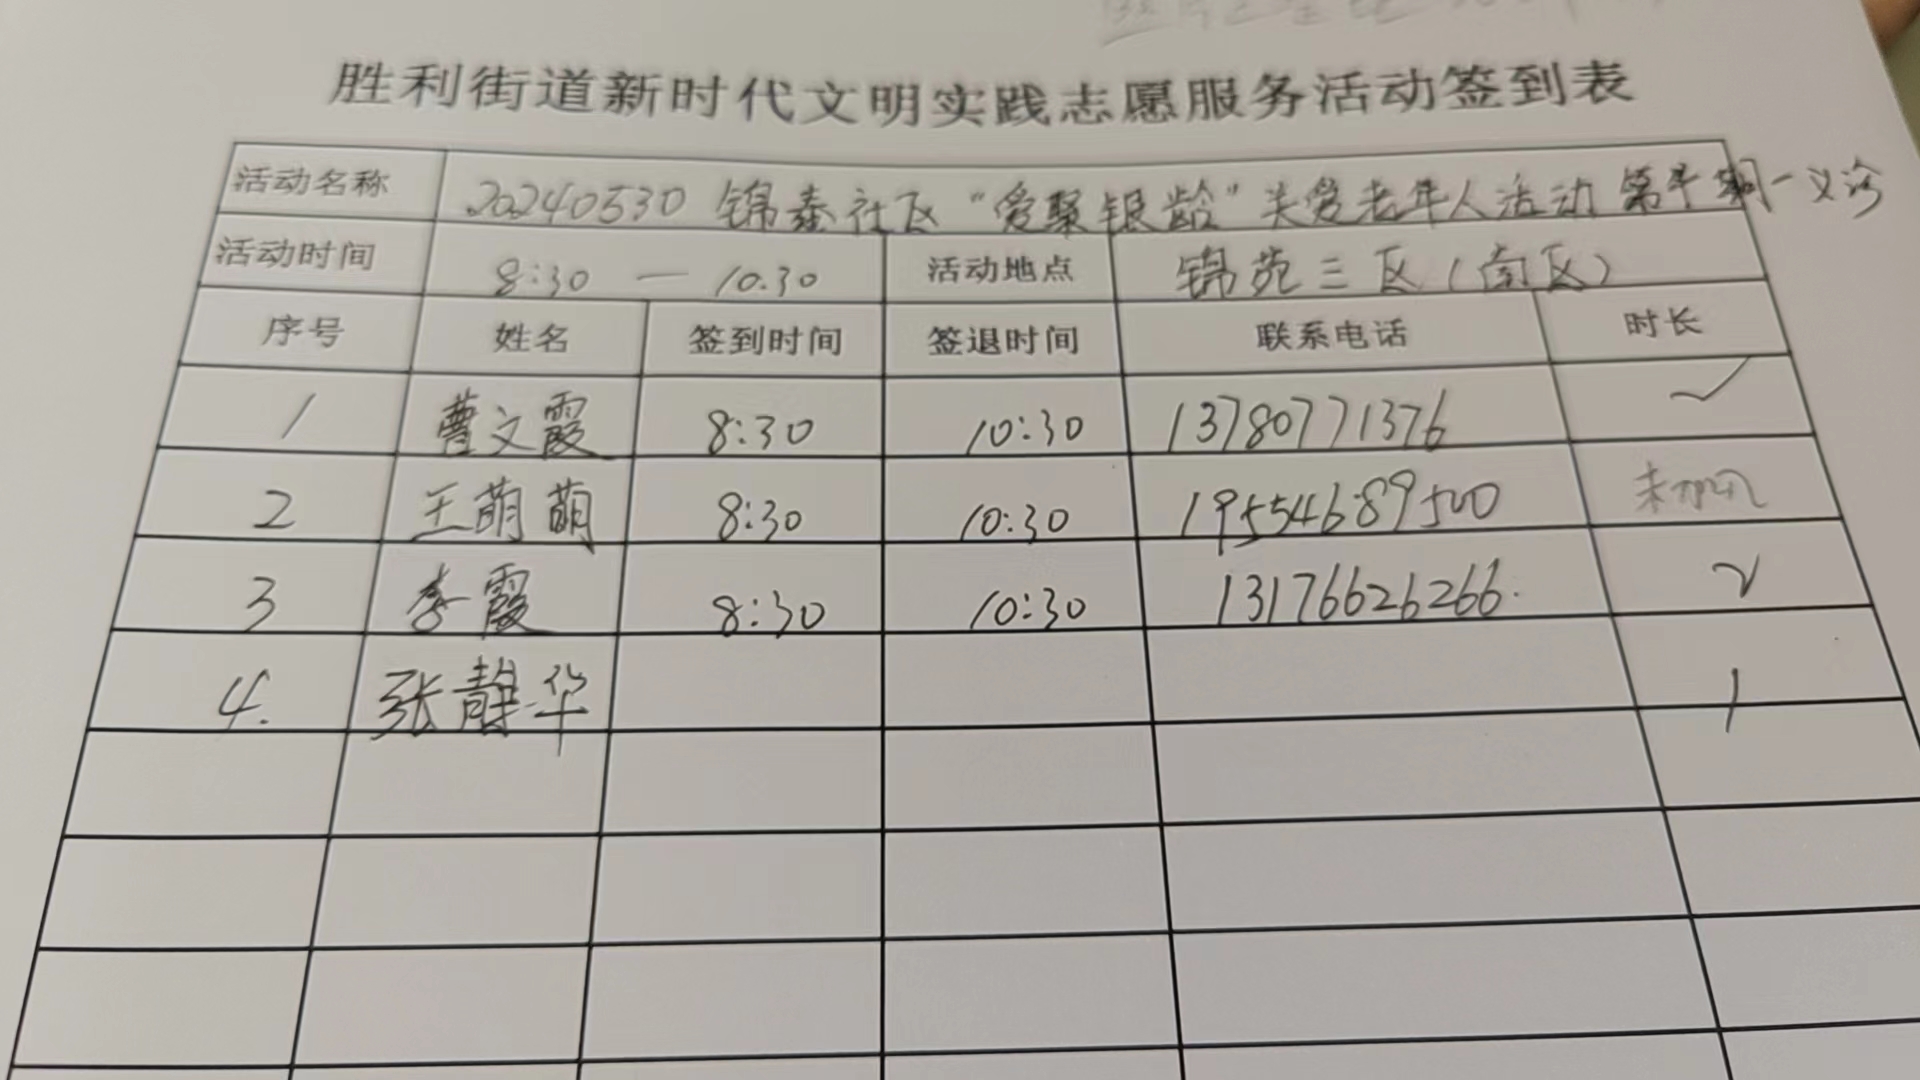 胜利街道新时代文明实践志愿服务活动签到表
活动名称 20240530 锦泰社区“爱聚银龄”关爱老年人活动 第十期一义诊
活动时间 8:30 — 10.30 活动地点 锦苑三区(南区)
序号 姓名 签到时间 签退时间 联系电话 时长
1 曹文霞 8:30 10:30 13780771376 ✓
2 王萌萌 8:30 10:30 19554689500
3 李霞 8:30 10:30 13176626266. ✓
4. 张静华